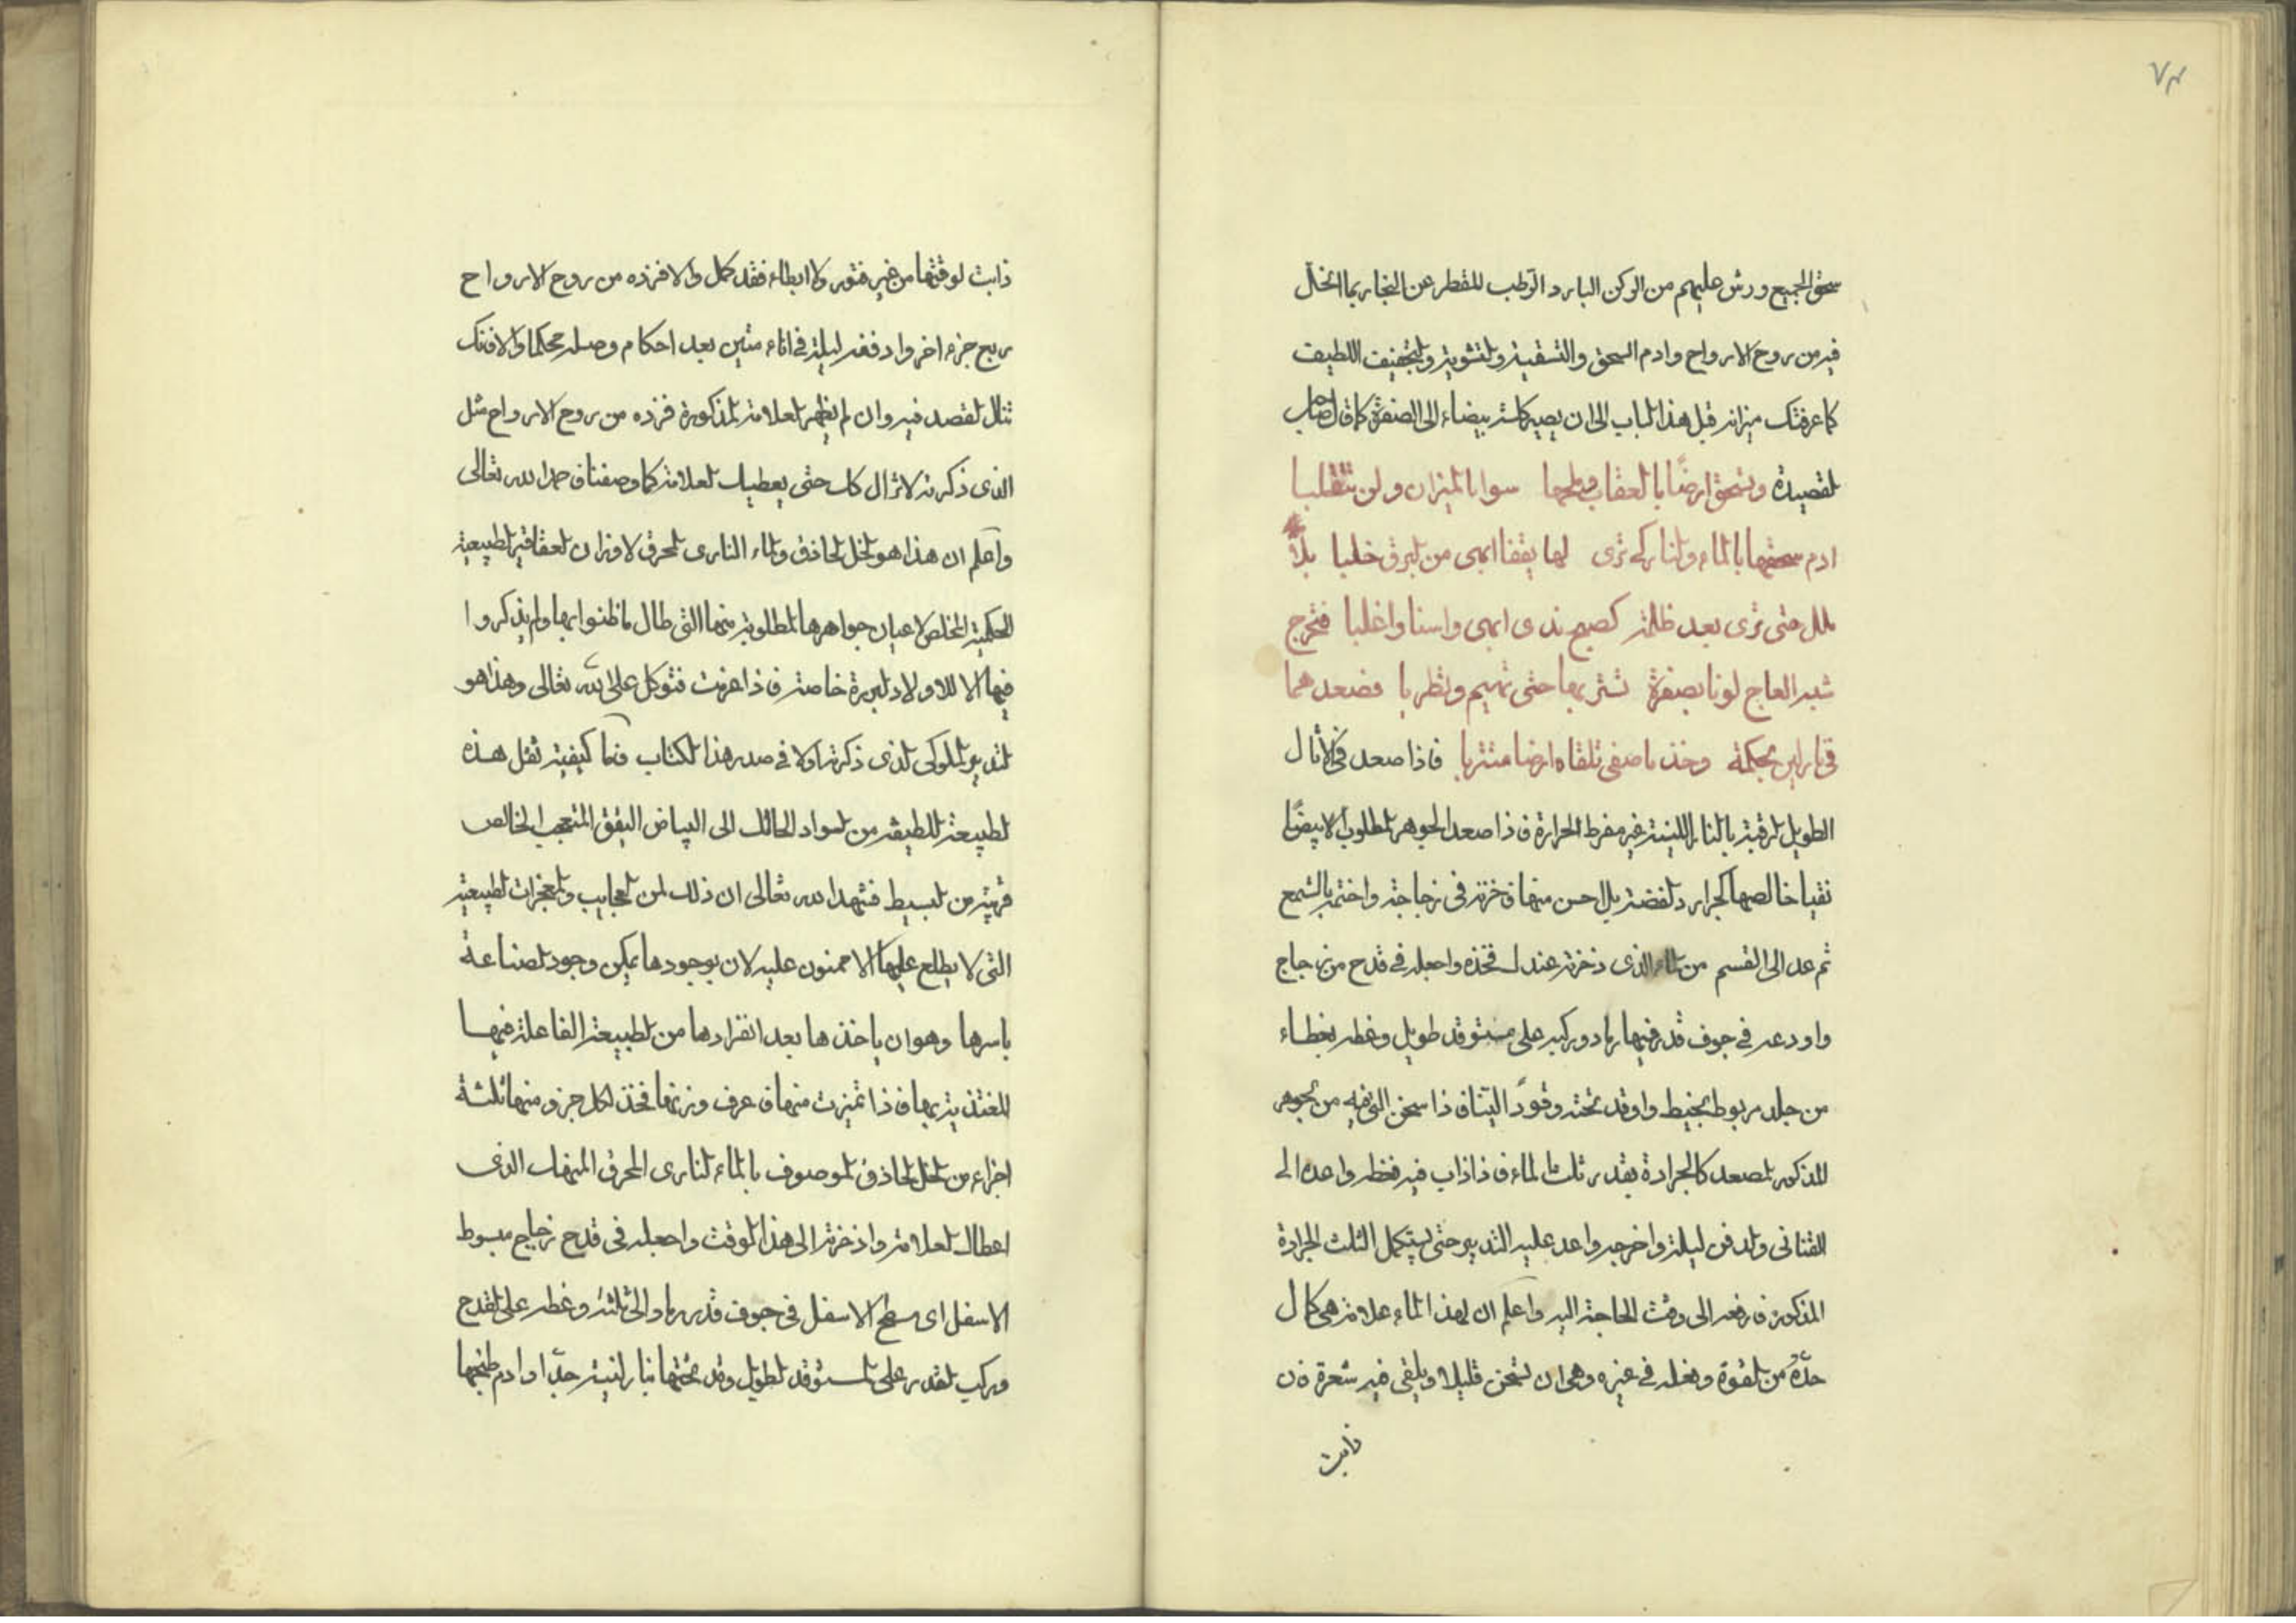 ٧٣
سحق الجميع ورش عليهم من الركن البارد الرطب المقطر عن البخار بما انحال
فيه من روح الارواح وادم السحق والتسقية والتشوية والتجفيف اللطيف
كما عرفتك ميزانه قبل هذا الباب الى ان يصير كلسه بيضاء الى الصفرة كما قال صاحب
القصيدة وتسحق ارضا بالعقاب وملحها سوا بالميزان ولن تتقلبا
ادم سحقها بالماء والنار كي ترى لها يققا ابهى من البرق خلبا بلا
ملل حتى ترى بعد ظلمة كصبح ندى ابهى واسنا واغلبا فتخرج
شبه العاج لونا بصفرة تسر بها حتى تهيم وتطربا فصعدهما
في نار لين بحكمة وخذ ما صفى تلقاه ارضا متتربا فاذا صعد في الاثال
الطويل الرقبة بالنار اللينة غير مفرط الحرارة فاذا صعد الجوهر المطلوب ابيضا
نقيا خالصها كبراد الفضة بل احسن منها فاخزنه في زجاجة واختمه بالشمع
ثم عد الى القسم من الماء الذي ذخرته عندك فخذه واجعله في قدح من زجاج
واودعه في جوف قدر فيها رماد وركبه على مستوقد طويل وغطه بغطاء
من جلد مربوط بخيط واوقد تحته وقودا لينا فاذا سخن الق فيه من الجوهر
المذكور المصعد كالبرادة بقدر ثلث الماء فاذا ذاب فيه فغطه واعده الى
القناني والدفن ليلة واخرجه واعد عليه التدبير حتى يستكمل الثلث البرادة
المذكورة فارفعه الى وقت الحاجة اليه واعلم ان لهذا الماء علامة هي كمال
حده من القوة وفعله في غيره وهي ان تسخن قليلا ويلقى فيه شعرة فان
ذابت
ذابت لوقتها من غير فتور ولا ابطاء فقد كمل والا فزده من روح الارواح
ربع جزء اخر وادفنه ليلة في اناء متين بعد احكام وصله محكما والا فاتك
تنال القصد فيه وان لم يظهر العلامة المذكورة فزده من روح الارواح مثل
الذي ذكرته لا تزال كذلك حتى يعطيك العلامة كما وصفنا حمد الله تعالى
واعلم ان هذا هو الخل الحاذق والماء الناري المحرق لاوزان العقاقير الطبيعية
الحكمية المخلص لاعيان جواهرها المطلوبة منها التي طال ما ظنوا بها ولم يذكروا
فيها الا للاولاد البررة خاصة فاذا عرفت فتوكل على الله تعالى وهذا هو
التدبير الملوكي الذي ذكرته اولا في صدر هذا الكتاب فاما كيفية نقل هذه
الطبيعة اللطيفة من السواد الحالك الى البياض اليقق المتعجب الخالص
قربته من البسيط فشهد الله تعالى ان ذلك لمن العجايب والمعجزات الطبيعية
التي لا يطلع عليها الا ممنون عليه لان بوجودها يمكن وجود الصناعة
باسرها وهو ان ياخذها بعد انفرادها من الطبيعة الفاعلة فيها
المغتذية بها فاذا تميزت منها فاعرف وزنها فخذ لكل جزو منها ثلثة
اجزاء من الخل الحاذق الموصوف بالماء الناري المحرق المنهاك الذي
اعطاك العلامة واذخرته الى هذا الوقت واجعله في قدح زجاج مبسوط
الاسفل اى سطح الاسفل في جوف قدر رماد الى ثلثه وغطه على القدح
وركب القدر على المستوقد الطويل وقد تحتها نار لينة جدا وادم طبخها